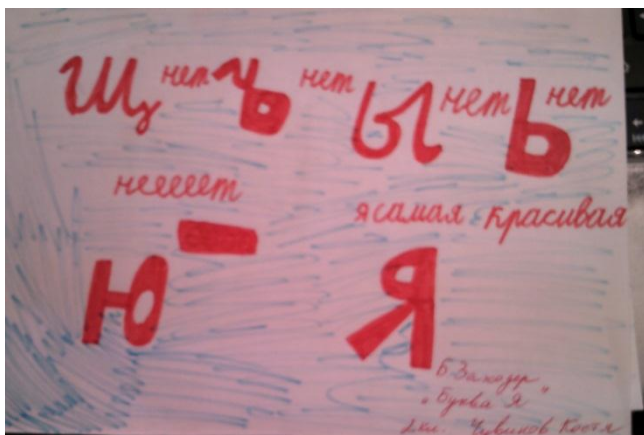 Щ нет Ъ нет Ы нет Ь нет
нееееет
я самая красивая
Ю - Я
Б Заходер
„Буква Я"
2кл. Чивинов Костя